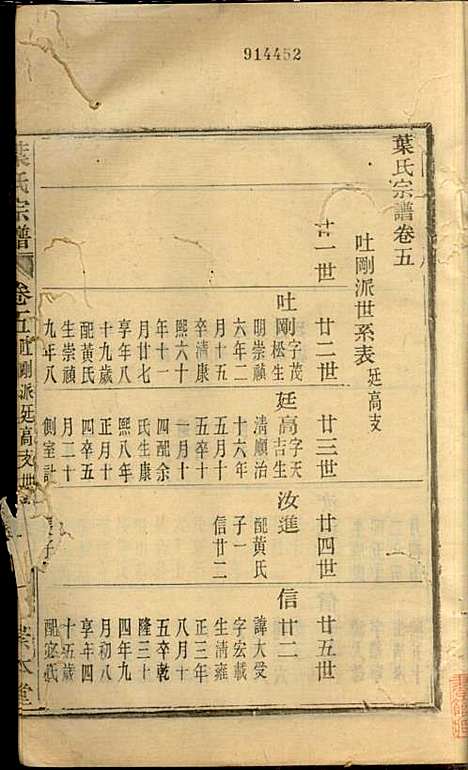 914452
葉氏宗譜卷五
吐剛派世系表 廷高支
廿一世
廿二世
廿三世
廿四世
廿五世
吐剛 字茂松生
明崇禎
六年二
月十五
卒清康
熙六十
年十一
月廿七
享年八
十九歲
配黃氏
生崇禎
九年八
廷高 字天吉生
清順治
十六年
五月十
五卒十
一月十
四配余
氏生康
熙八年
正月十
四卒五
月二十
側室計
汝進
配黃氏
子一
信廿二
信廿二
諱大受
字宏載
生清雍
正三年
八月十
五卒乾
隆三十
四年九
月初八
享年四
十五歲
配寇氏
葉氏宗譜
卷五
吐剛派廷高支世
本堂